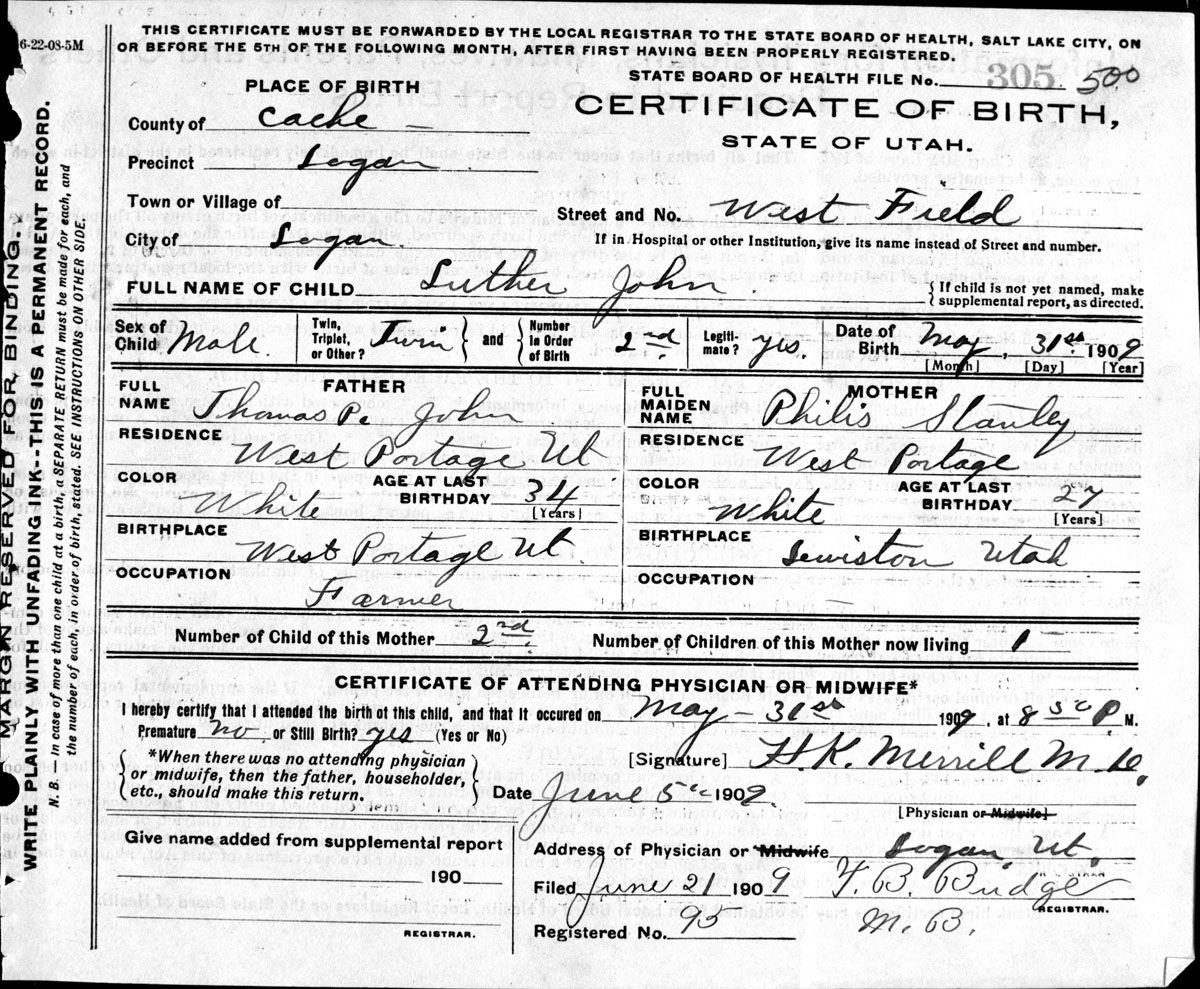 6-22-08-5M
THIS CERTIFICATE MUST BE FORWARDED BY THE LOCAL REGISTRAR TO THE STATE BOARD OF HEALTH, SALT LAKE CITY, ON
OR BEFORE THE 5TH OF THE FOLLOWING MONTH, AFTER FIRST HAVING BEEN PROPERLY REGISTERED.
STATE BOARD OF HEALTH FILE No. 305 500
PLACE OF BIRTH
CERTIFICATE OF BIRTH,
STATE OF UTAH.
County of Cache
Precinct Logan
Town or Village of
Street and No. West Field
City of Logan
If in Hospital or other Institution, give its name instead of Street and number.
FULL NAME OF CHILD Luther John
If child is not yet named, make
supplemental report, as directed.
Sex of Child Male
Twin, Triplet, or Other? Twin and Number in Order of Birth 2nd
Legiti-mate? yes.
Date of Birth May, 31st 1909
[Month] [Day] [Year]
FATHER
FULL NAME Thomas P. John
RESIDENCE West Portage Ut
COLOR White AGE AT LAST BIRTHDAY 34 [Years]
BIRTHPLACE West Portage Ut.
OCCUPATION Farmer
MOTHER
FULL MAIDEN NAME Philis Stanley
RESIDENCE West Portage
COLOR White AGE AT LAST BIRTHDAY 27 [Years]
BIRTHPLACE Lewiston Utah
OCCUPATION
Number of Child of this Mother 2nd Number of Children of this Mother now living 1
CERTIFICATE OF ATTENDING PHYSICIAN OR MIDWIFE*
I hereby certify that I attended the birth of this child, and that it occured on May - 31st 1909, at 8 30 P M.
Premature No or Still Birth? yes (Yes or No)
*When there was no attending physician
or midwife, then the father, householder,
etc., should make this return.
[Signature] H. K. Merrill M. D.
Date June 5th 1909.
[Physician or Midwife]
Give name added from supplemental report
190
REGISTRAR.
Address of Physician or Midwife Logan, Ut.
Filed June 21 1909 F. B. Budge
REGISTRAR.
Registered No. 93 M. B.
MARGIN RESERVED FOR BINDING.
WRITE PLAINLY WITH UNFADING INK--THIS IS A PERMANENT RECORD.
N. B.—In case of more than one child at a birth, a SEPARATE RETURN must be made for each, and
the number of each, in order of birth, stated. SEE INSTRUCTIONS ON OTHER SIDE.